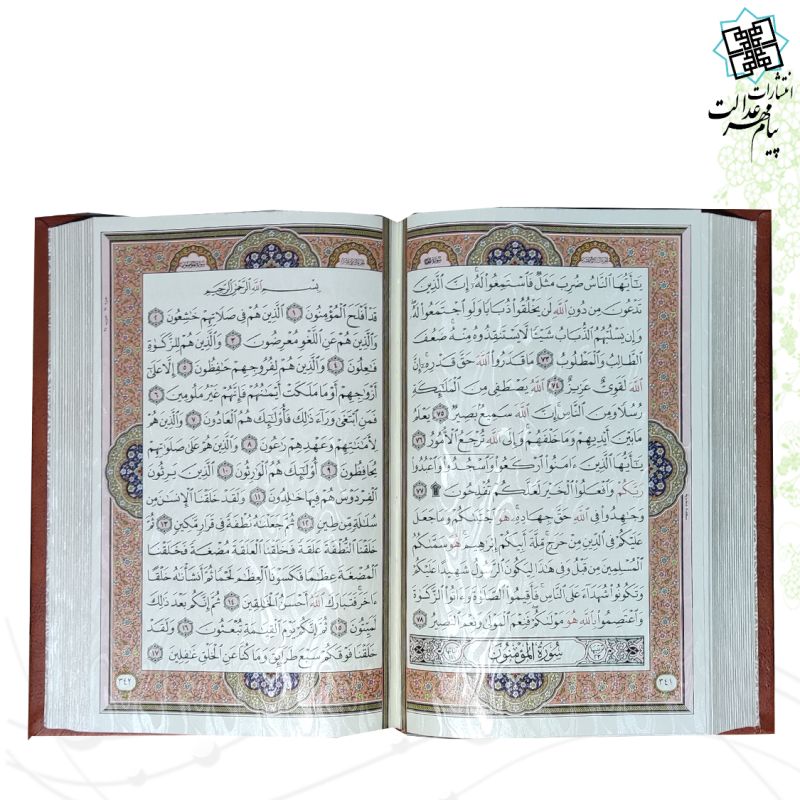 انتشارات
پیام مهر عدالت
يَٰٓأَيُّهَا ٱلنَّاسُ ضُرِبَ مَثَلٌ فَٱسْتَمِعُوا۟ لَهُۥٓ ۚ إِنَّ ٱلَّذِينَ
تَدْعُونَ مِن دُونِ ٱللَّهِ لَن يَخْلُقُوا۟ ذُبَابًا وَلَوِ ٱجْتَمَعُوا۟ لَهُۥ ۖ
وَإِن يَسْلُبْهُمُ ٱلذُّبَابُ شَيْـًٔا لَّا يَسْتَنقِذُوهُ مِنْهُ ۚ ضَعُفَ
ٱلطَّالِبُ وَٱلْمَطْلُوبُ ٧٣ مَا قَدَرُوا۟ ٱللَّهَ حَقَّ قَدْرِهِۦٓ ۗ إِنَّ
ٱللَّهَ لَقَوِىٌّ عَزِيزٌ ٧٤ ٱللَّهُ يَصْطَفِى مِنَ ٱلْمَلَٰٓئِكَةِ
رُسُلًا وَمِنَ ٱلنَّاسِ ۚ إِنَّ ٱللَّهَ سَمِيعٌۢ بَصِيرٌ ٧٥ يَعْلَمُ
مَا بَيْنَ أَيْدِيهِمْ وَمَا خَلْفَهُمْ ۗ وَإِلَى ٱللَّهِ تُرْجَعُ ٱلْأُمُورُ ٧٦
يَٰٓأَيُّهَا ٱلَّذِينَ ءَامَنُوا۟ ٱرْكَعُوا۟ وَٱسْجُدُوا۟ وَٱعْبُدُوا۟
رَبَّكُمْ وَٱفْعَلُوا۟ ٱلْخَيْرَ لَعَلَّكُمْ تُفْلِحُونَ ۩ ٧٧
وَجَٰهِدُوا۟ فِى ٱللَّهِ حَقَّ جِهَادِهِۦ ۚ هُوَ ٱجْتَبَىٰكُمْ وَمَا جَعَلَ
عَلَيْكُمْ فِى ٱلدِّينِ مِنْ حَرَجٍ ۚ مِّلَّةَ أَبِيكُمْ إِبْرَٰهِيمَ ۚ هُوَ سَمَّىٰكُمُ
ٱلْمُسْلِمِينَ مِن قَبْلُ وَفِى هَٰذَا لِيَكُونَ ٱلرَّسُولُ شَهِيدًا عَلَيْكُمْ
وَتَكُونُوا۟ شُهَدَآءَ عَلَى ٱلنَّاسِ ۚ فَأَقِيمُوا۟ ٱلصَّلَوٰةَ وَءَاتُوا۟ ٱلزَّكَوٰةَ
وَٱعْتَصِمُوا۟ بِٱللَّهِ هُوَ مَوْلَىٰكُمْ ۖ فَنِعْمَ ٱلْمَوْلَىٰ وَنِعْمَ ٱلنَّصِيرُ ٧٨
سُورَةُ ٱلْمُؤْمِنُونَ
٣٤١
بِسْمِ ٱللَّهِ ٱلرَّحْمَٰنِ ٱلرَّحِيمِ
قَدْ أَفْلَحَ ٱلْمُؤْمِنُونَ ١ ٱلَّذِينَ هُمْ فِى صَلَاتِهِمْ خَٰشِعُونَ ٢
وَٱلَّذِينَ هُمْ عَنِ ٱللَّغْوِ مُعْرِضُونَ ٣ وَٱلَّذِينَ هُمْ لِلزَّكَوٰةِ
فَٰعِلُونَ ٤ وَٱلَّذِينَ هُمْ لِفُرُوجِهِمْ حَٰفِظُونَ ٥ إِلَّا عَلَىٰٓ
أَزْوَٰجِهِمْ أَوْ مَا مَلَكَتْ أَيْمَٰنُهُمْ فَإِنَّهُمْ غَيْرُ مَلُومِينَ ٦
فَمَنِ ٱبْتَغَىٰ وَرَآءَ ذَٰلِكَ فَأُو۟لَٰٓئِكَ هُمُ ٱلْعَادُونَ ٧ وَٱلَّذِينَ هُمْ
لِأَمَٰنَٰتِهِمْ وَعَهْدِهِمْ رَٰعُونَ ٨ وَٱلَّذِينَ هُمْ عَلَىٰ صَلَوَٰتِهِمْ
يُحَافِظُونَ ٩ أُو۟لَٰٓئِكَ هُمُ ٱلْوَٰرِثُونَ ١٠ ٱلَّذِينَ يَرِثُونَ
ٱلْفِرْدَوْسَ هُمْ فِيهَا خَٰلِدُونَ ١١ وَلَقَدْ خَلَقْنَا ٱلْإِنسَٰنَ مِن
سُلَٰلَةٍ مِّن طِينٍ ١٢ ثُمَّ جَعَلْنَٰهُ نُطْفَةً فِى قَرَارٍ مَّكِينٍ ١٣ ثُمَّ
خَلَقْنَا ٱلنُّطْفَةَ عَلَقَةً فَخَلَقْنَا ٱلْعَلَقَةَ مُضْغَةً فَخَلَقْنَا
ٱلْمُضْغَةَ عِظَٰمًا فَكَسَوْنَا ٱلْعِظَٰمَ لَحْمًا ثُمَّ أَنشَأْنَٰهُ خَلْقًا
ءَاخَرَ ۚ فَتَبَارَكَ ٱللَّهُ أَحْسَنُ ٱلْخَٰلِقِينَ ١٤ ثُمَّ إِنَّكُم بَعْدَ ذَٰلِكَ
لَمَيِّتُونَ ١٥ ثُمَّ إِنَّكُمْ يَوْمَ ٱلْقِيَٰمَةِ تُبْعَثُونَ ١٦ وَلَقَدْ
خَلَقْنَا فَوْقَكُمْ سَبْعَ طَرَآئِقَ وَمَا كُنَّا عَنِ ٱلْخَلْقِ غَٰفِلِينَ ١٧
٣٤٢